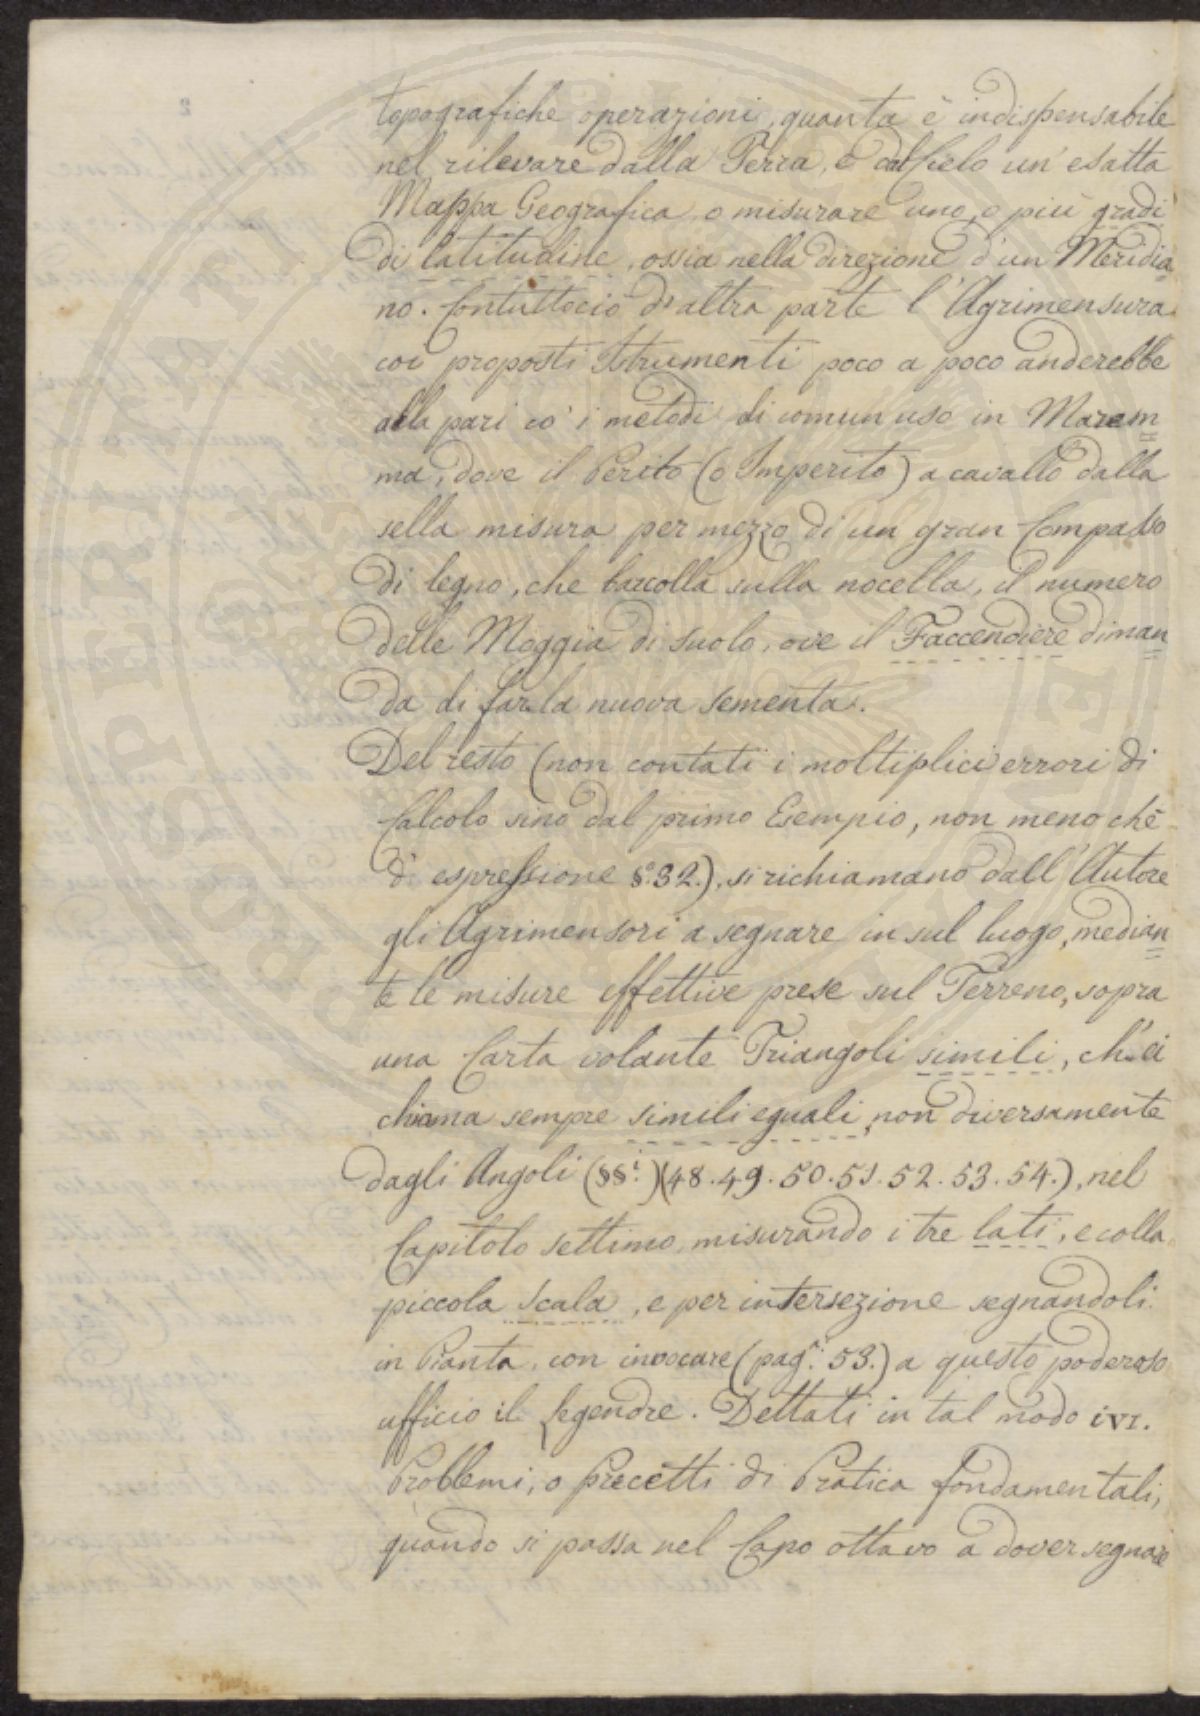 topografiche operazioni, quanta è indispensabile
nel rilevare dalla Terra, e dal Cielo un' esatta
Mappa Geografica, o misurare uno, o più gradi
di latitudine, ossia nella direzione d'un Meridia
no. Contuttociò d'altra parte l'Agrimensura
coi proposti Istrumenti poco a poco anderebbe
alla pari co' i metodi di comun uso in Marem
ma, dove il Perito (o Imperito) a cavallo dalla
sella misura per mezzo di un gran Compasso
di legno, che barcolla sulla nocella, il numero
delle Moggia di suolo, ove il Faccendiere diman
da di far la nuova sementa.
Del resto (non contati i moltiplici errori di
Calcolo sino dal primo Esempio, non meno chè
d' espressione §. 32.), si richiamano dall' Autore
gli Agrimensori a segnare in sul luogo, median
te le misure effettive prese sul Terreno, sopra
una Carta volante Triangoli simili, ch' ei
chiama sempre simili eguali, non diversamente
dagli Angoli (§§i.)(48. 49. 50. 51. 52. 53. 54.), nel
Capitolo settimo, misurando i tre lati, e colla
piccola Scala, e per intersezione segnandoli
in Pianta, con invocare (pag. 53.) a questo poderoso
ufficio il Legendre. Dettati in tal modo i VI.
Problemi, o Precetti di Pratica fondamentali,
quando si passa nel Capo ottavo a dover segnare
PROSPERITATI